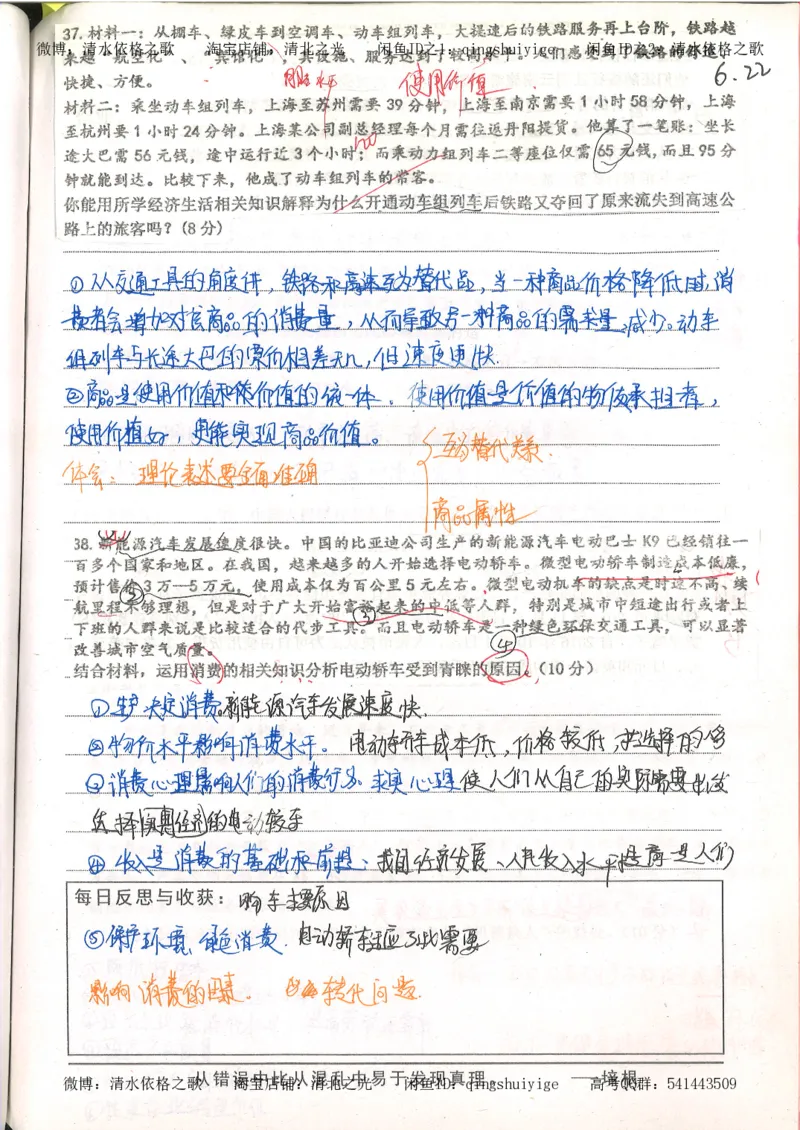 37. 材料一：从棚车、绿皮车到空调车、动车组列车，大提速后的铁路服务再上台阶，铁路越
微博：清水依格之歌 淘宝店铺：清北之光 闲鱼ID之1：qingshuiyige 闲鱼ID之2：清水依格之歌
快捷、方便。
使用价值
6.22
材料二：乘坐动车组列车，上海至苏州需要 39 分钟，上海至南京需要 1 小时 58 分钟，上海
至杭州要 1 小时 24 分钟。上海某公司副总经理每个月需往返丹阳提货。他算了一笔账：坐长
途大巴需 56 元钱，途中运行近 3 个小时；而乘动力组列车二等座位仅需 65 元钱，而且 95 分
钟就能到达。比较下来，他成了动车组列车的常客。
你能用所学经济生活相关知识解释为什么开通动车组列车后铁路又夺回了原来流失到高速公
路上的旅客吗？（8 分）
①从交通工具的角度讲，铁路和高速互为替代品，当一种商品价格降低时，消
费者会增加对该商品的消费量，从而导致另一种商品的需求量减少。动车
组列车与长途大巴的票价相差无几，但速度更快.
②商品是使用价值和价值的统一体。使用价值是价值的物质承担者，
使用价值好，更能实现商品价值。
体会：理论表述要全面准确
互为替代关系.
商品属性
38. 新能源汽车发展速度很快。中国的比亚迪公司生产的新能源汽车电动巴士 K9 已经销往一
百多个国家和地区。在我国，越来越多的人开始选择电动轿车。微型电动轿车制造成本低廉，
预计售价 3 万—5 万元，使用成本仅为百公里 5 元左右。微型电动机车的缺点是时速不高、续
航里程不够理想，但是对于广大开始富裕起来的中低等人群，特别是城市中短途出行或者上
下班的人群来说是比较适合的代步工具。而且电动轿车是一种绿色环保交通工具，可以显著
改善城市空气质量。
结合材料，运用消费的相关知识分析电动轿车受到青睐的原因。（10 分）
①生产决定消费。新能源汽车发展速度快.
②物价水平影响消费水平。电动轿车成本低，价格较低，选择的多
③消费心理影响人们的消费行为。求实心理使人们从自己的实际需要出发
选择实惠经济的电动轿车
④收入是消费的基础和前提、我国经济发展、人民收入水平提高是人们
每日反思与收获：购车主要原因
⑤保护环境、绿色消费. 电动轿车适应
影响消费的因素。 转化问题.
从错误中比从混乱中易于发现真理 ——培根
微博：清水依格之歌 淘宝店铺：清北之光 闲鱼ID：qingshuiyige 高考QQ群：541443509